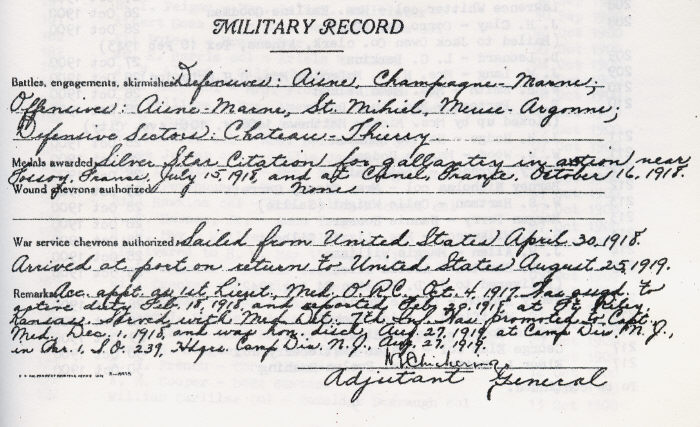 MILITARY RECORD
Battles, engagements, skirmishes Defensives: Aisne, Champagne-Marne;
Offensives: Aisne Marne, St. Mihiel, Meuse-Argonne;
Defensive Sectors: Chateau-Thierry
Medals awarded Silver Star Citation for gallantry in action near
Fossoy, France, July 15, 1918, and at Cunel, France, October 16, 1918.
Wound chevrons authorized None
War service chevrons authorized Sailed from United States April 30, 1918.
Arrived at port on return to United States August 25, 1919.
Remarks Acc. appt. as 1st Lieut., Med. O.R.C. Oct. 4, 1917. Was assgd. to
active duty Feb. 18, 1918 and reported Feb. 20, 1918 at Ft. Riley,
Kansas. Served with Med. Det. 7th Inf. Was promoted to Capt.
Med. Dec. 1, 1918, and was hon. disch. Aug. 27, 1919 at Camp Dix, N.J.,
in Par. 1, S.O. 239, Hdqrs. Camp Dix, N.J., Aug. 27, 1919.
Adjutant General